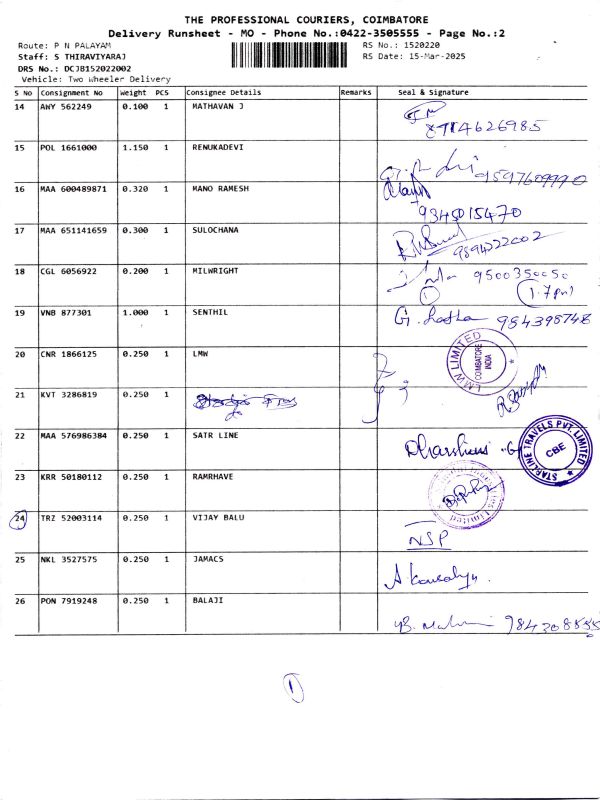 THE PROFESSIONAL COURIERS, COIMBATORE
Delivery Runsheet - MO - Phone No.:0422-3505555 - Page No.:2
Route: P N PALAYAM RS No.: 1520220
Staff: S THIRAVIYARAJ RS Date: 15-Mar-2025
DRS No.: DCJB152022002
Vehicle: Two Wheeler Delivery
S No Consignment No Weight PCS Consignee Details Remarks Seal & Signature
14 AWY 562249 0.100 1 MATHAVAN J
8914626985
15 POL 1661000 1.150 1 RENUKADEVI
9597609990
16 MAA 600489871 0.320 1 MANO RAMESH
9345015470
17 MAA 651141659 0.300 1 SULOCHANA
9894222002
18 CGL 6056922 0.200 1 MILWRIGHT
9500350050
1
19 VNB 877301 1.000 1 SENTHIL
G. Latha 954398748
20 CNR 1866125 0.250 1 LMW
LMW LIMITED
COIMBATORE
INDIA
21 KVT 3286819 0.250 1
22 MAA 576986384 0.250 1 SATR LINE
Dharshini G
STARLINE TRAVELS PVT. LIMITED
CBE
23 KRR 50180112 0.250 1 RAMRHAVE
Limited
24 TRZ 52003114 0.250 1 VIJAY BALU
NSP
25 NKL 3527575 0.250 1 JAMACS
26 PON 7919248 0.250 1 BALAJI
984308555
1